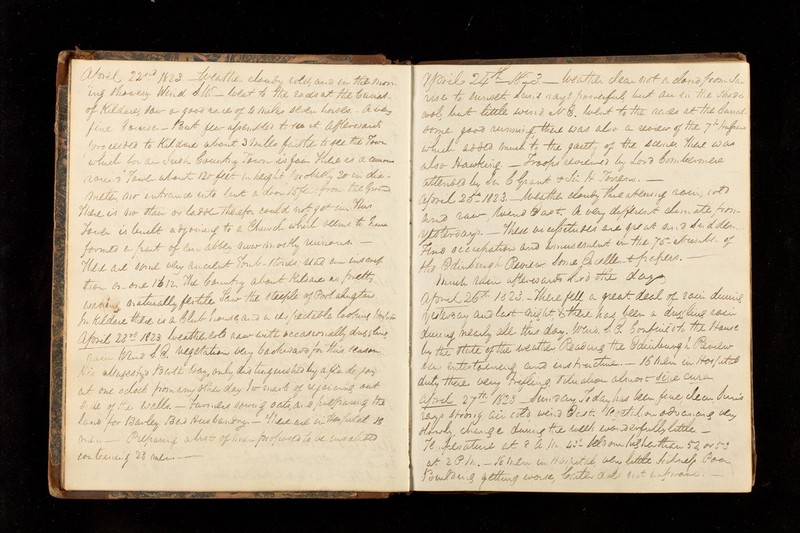 April 22nd 1823 — Weather cloudy cold, and in the morn-
ing showery Wind S.W. — Went to the races at the Curragh
of Kildare, saw a good race of 4 miles seven horses. A very
fine Course — But few assembled to see it. Afterwards
proceeded to Kildare about 3 miles further to see the Town
which for an Irish Country Town is fair. There is a
Tower about 120 feet in height probably 20 in dia-
meter, no entrance into but a door 15 ft. from the Ground
There is no stair or ladder therefor could not get in. This
Tower is built adjoining to a Church which seems to have
formed a part of an abbey now mostly ruinous. —
There are some very ancient Tomb-stones and an inscrip
tion on one 1612. The Country about Kildare is pretty
naturally fertile saw the steeple of Portarlington
In Kildare there is a Club house, and a respectable looking
April 23rd 1823 Weather cold raw with occasionally drizzling
rain Wind S.E. Vegetation very backward for this season
day, only distinguished by a
at one o'clock from any other day in mark of rejoicing out
side of the Walls — Farmers sowing oats, and preparing the
land for Barley. Bad Husbandry. — There are in Hospital 18
men — Preparing a list of men proposed to be invalided
containing 23 men. —
April 24th 1823 — Weather clear not a cloud from Sun
rise to Sunset Sun's rays powerful but air in the shade
cool, but little wind N.E. Went to the races at the Curragh
some good running there was also a review of the 7th
which added much to the gaiety of the scene. There was
also Hawking — Troops reviewed by Lord Combermere
attended by Sir C Grant & Sir H. Vivian. —
April 25th 1823. — Weather cloudy this evening rain, cold
and raw, Wind East. A very different climate from
yesterday. — These vicissitudes are great and sudden.
Find occupation and amusement in the 75th number of
the Edinburgh Review Some excellent papers. —
Much rain afterwards the day
April 26th 1823. — There fell a great deal of rain during
yesterday and last night & there has been a drizzling rain
during nearly all this day. Wind S.E. Confined to the House
by the state of the weather Reading the Edinburgh Review
entertaining and instructive. — 16 men in Hospital
duty there very trifling Situation almost sine cura
April 27th 1823 — Sunday, today has been fine clear Sun's
rays strong air cold wind East. Vegetation advancing very
slowly, change during the week wonderfully little —
Temperature at 8 A.M. 43° seldom higher than 52 or 53
at 2 P.M. — 16 men in Hospital very little sickness Poor
getting worse, does not improve. —